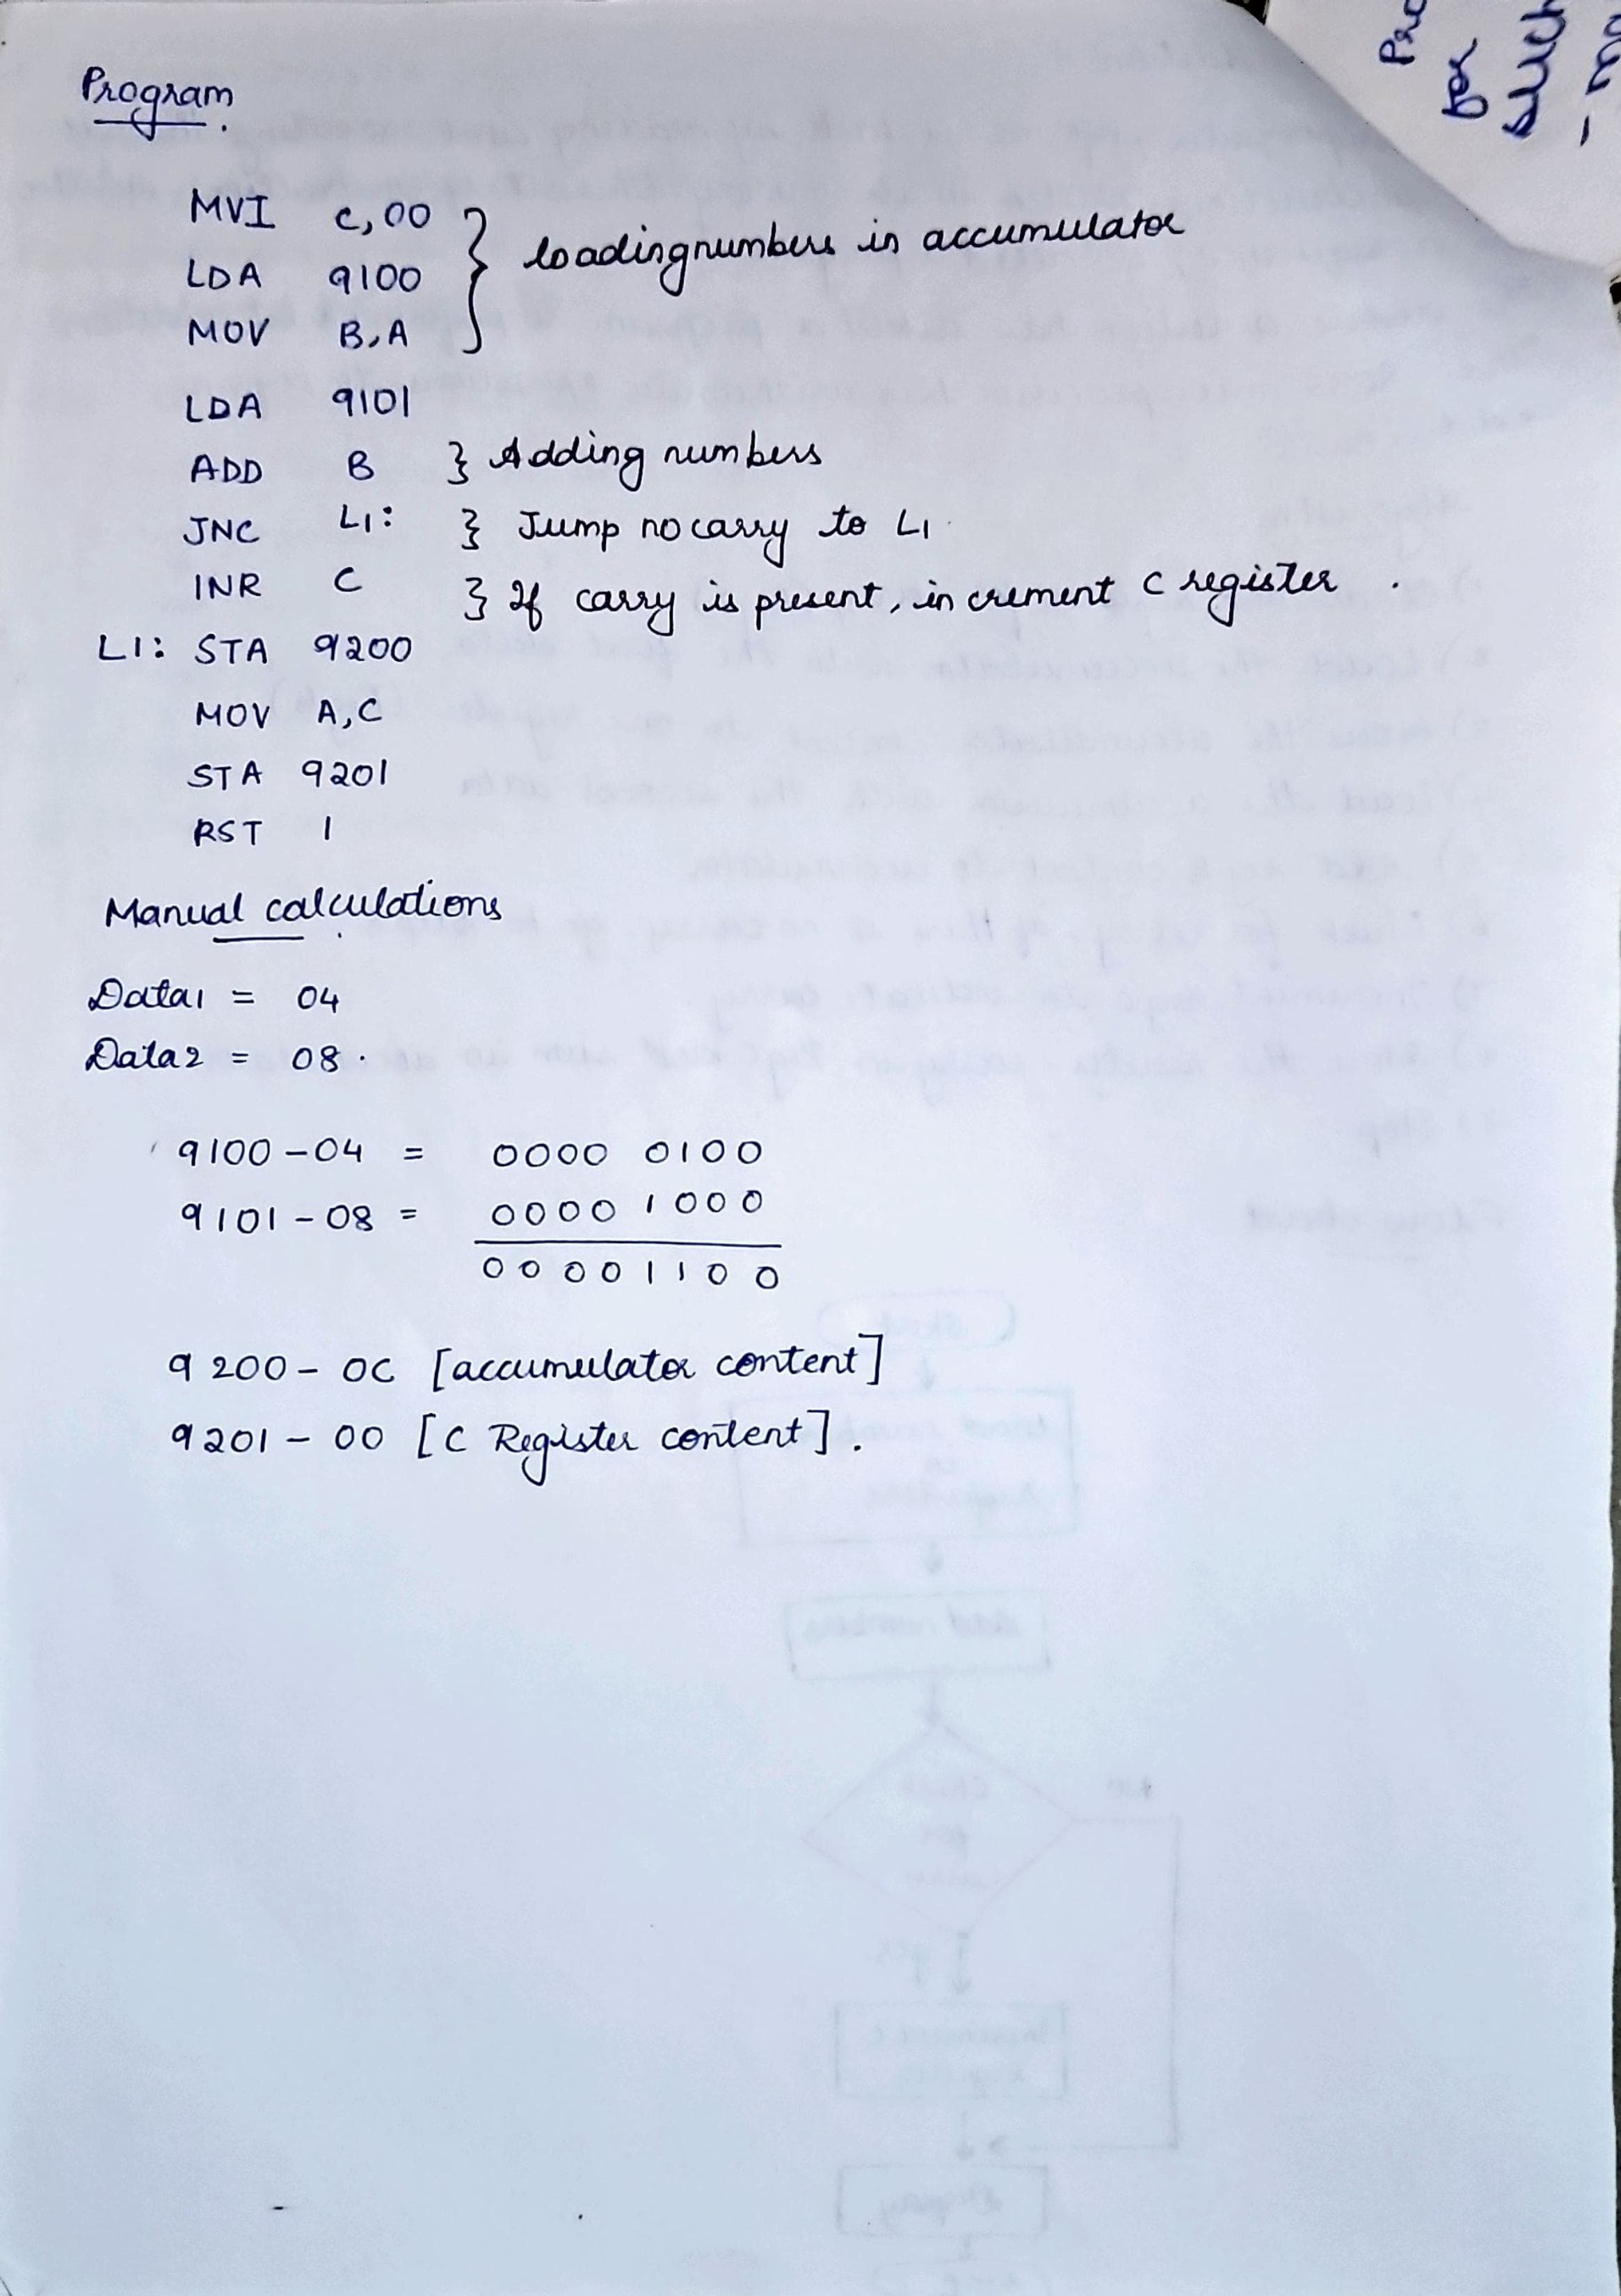 Program.
MVI C,00 } loading numbers in accumulator
LDA 9100
MOV B,A
LDA 9101
ADD B } Adding numbers
JNC L1: } Jump no carry to L1
INR C } If carry is present, increment C register.
L1: STA 9200
MOV A,C
STA 9201
RST 1
Manual calculations
Data1 = 04
Data2 = 08.
9100-04 = 0000 0100
9101-08 = 0000 1000
0000 1100
9200 - 0C [accumulator content]
9201 - 00 [C Register content].
for